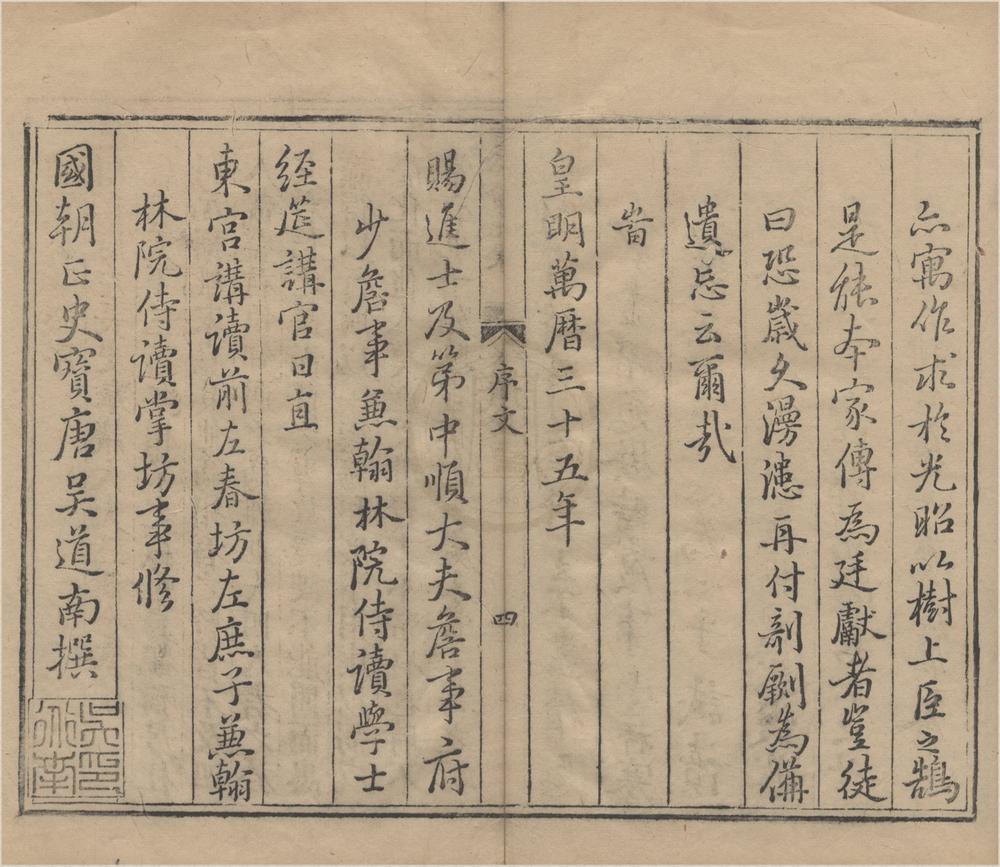 亦寓作求於光昭以樹上臣之鵠
是能本家傳為廷獻者豈徒
曰恐歲久漫漶再付剞劂為備
遺忘云爾哉
旹
皇明萬曆三十五年
序文
四
賜進士及第中順大夫詹事府
少詹事兼翰林院侍讀學士
經筵講官日直
東宮講讀前左春坊左庶子兼翰
林院侍讀掌坊事修
國朝正史寶唐吳道南撰
吳道南印